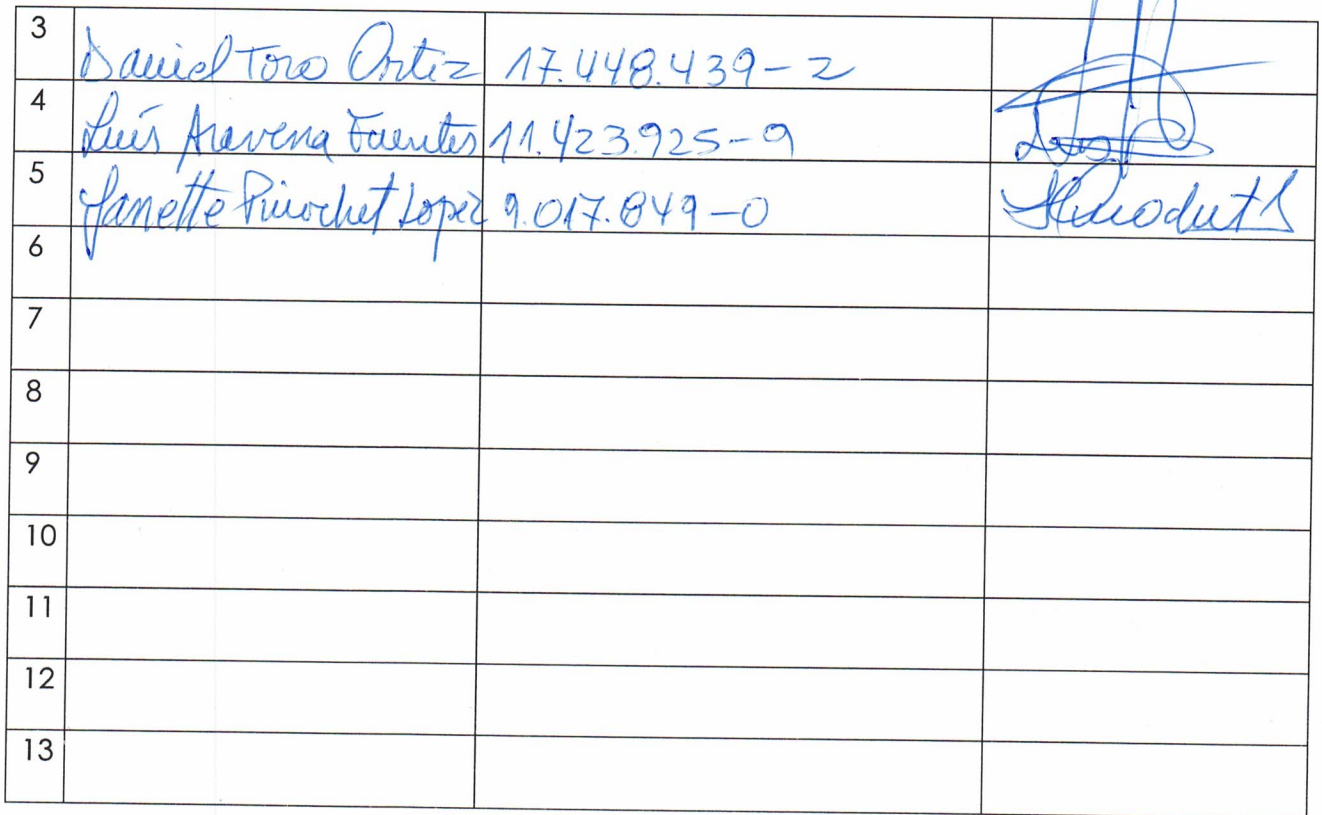 3 Daniel Toro Ortiz 17.448.439-2
4 Luís Aravena Fuentes 11.423.925-9
5 Janette Pinochet Lopez 9.017.849-0
6
7
8
9
10
11
12
13